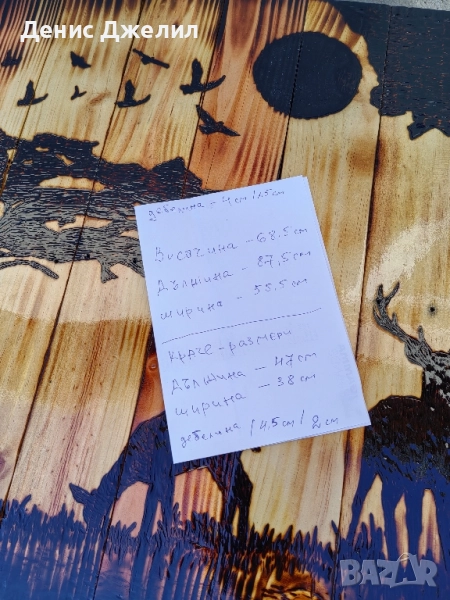 Денис Джелил
дебелина - 4 cm / 1.5 cm
Височина - 68.5 cm
Дължина - 87,5 cm
ширина - 55,5 cm
Краче - размери
Дължина - 47 cm
ширина - 38 cm
дебелина / 4.5 cm / 2 cm
BAZAR